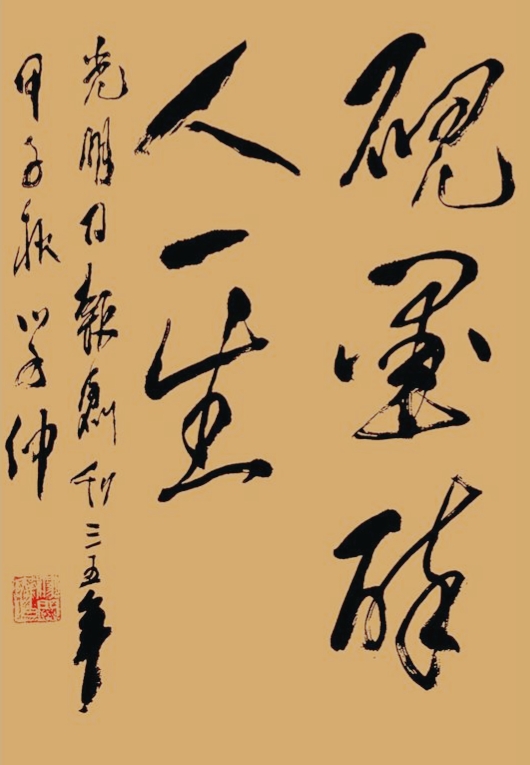 硯墨醉
人一生
光明日報創刊三五年
甲子秋學仲